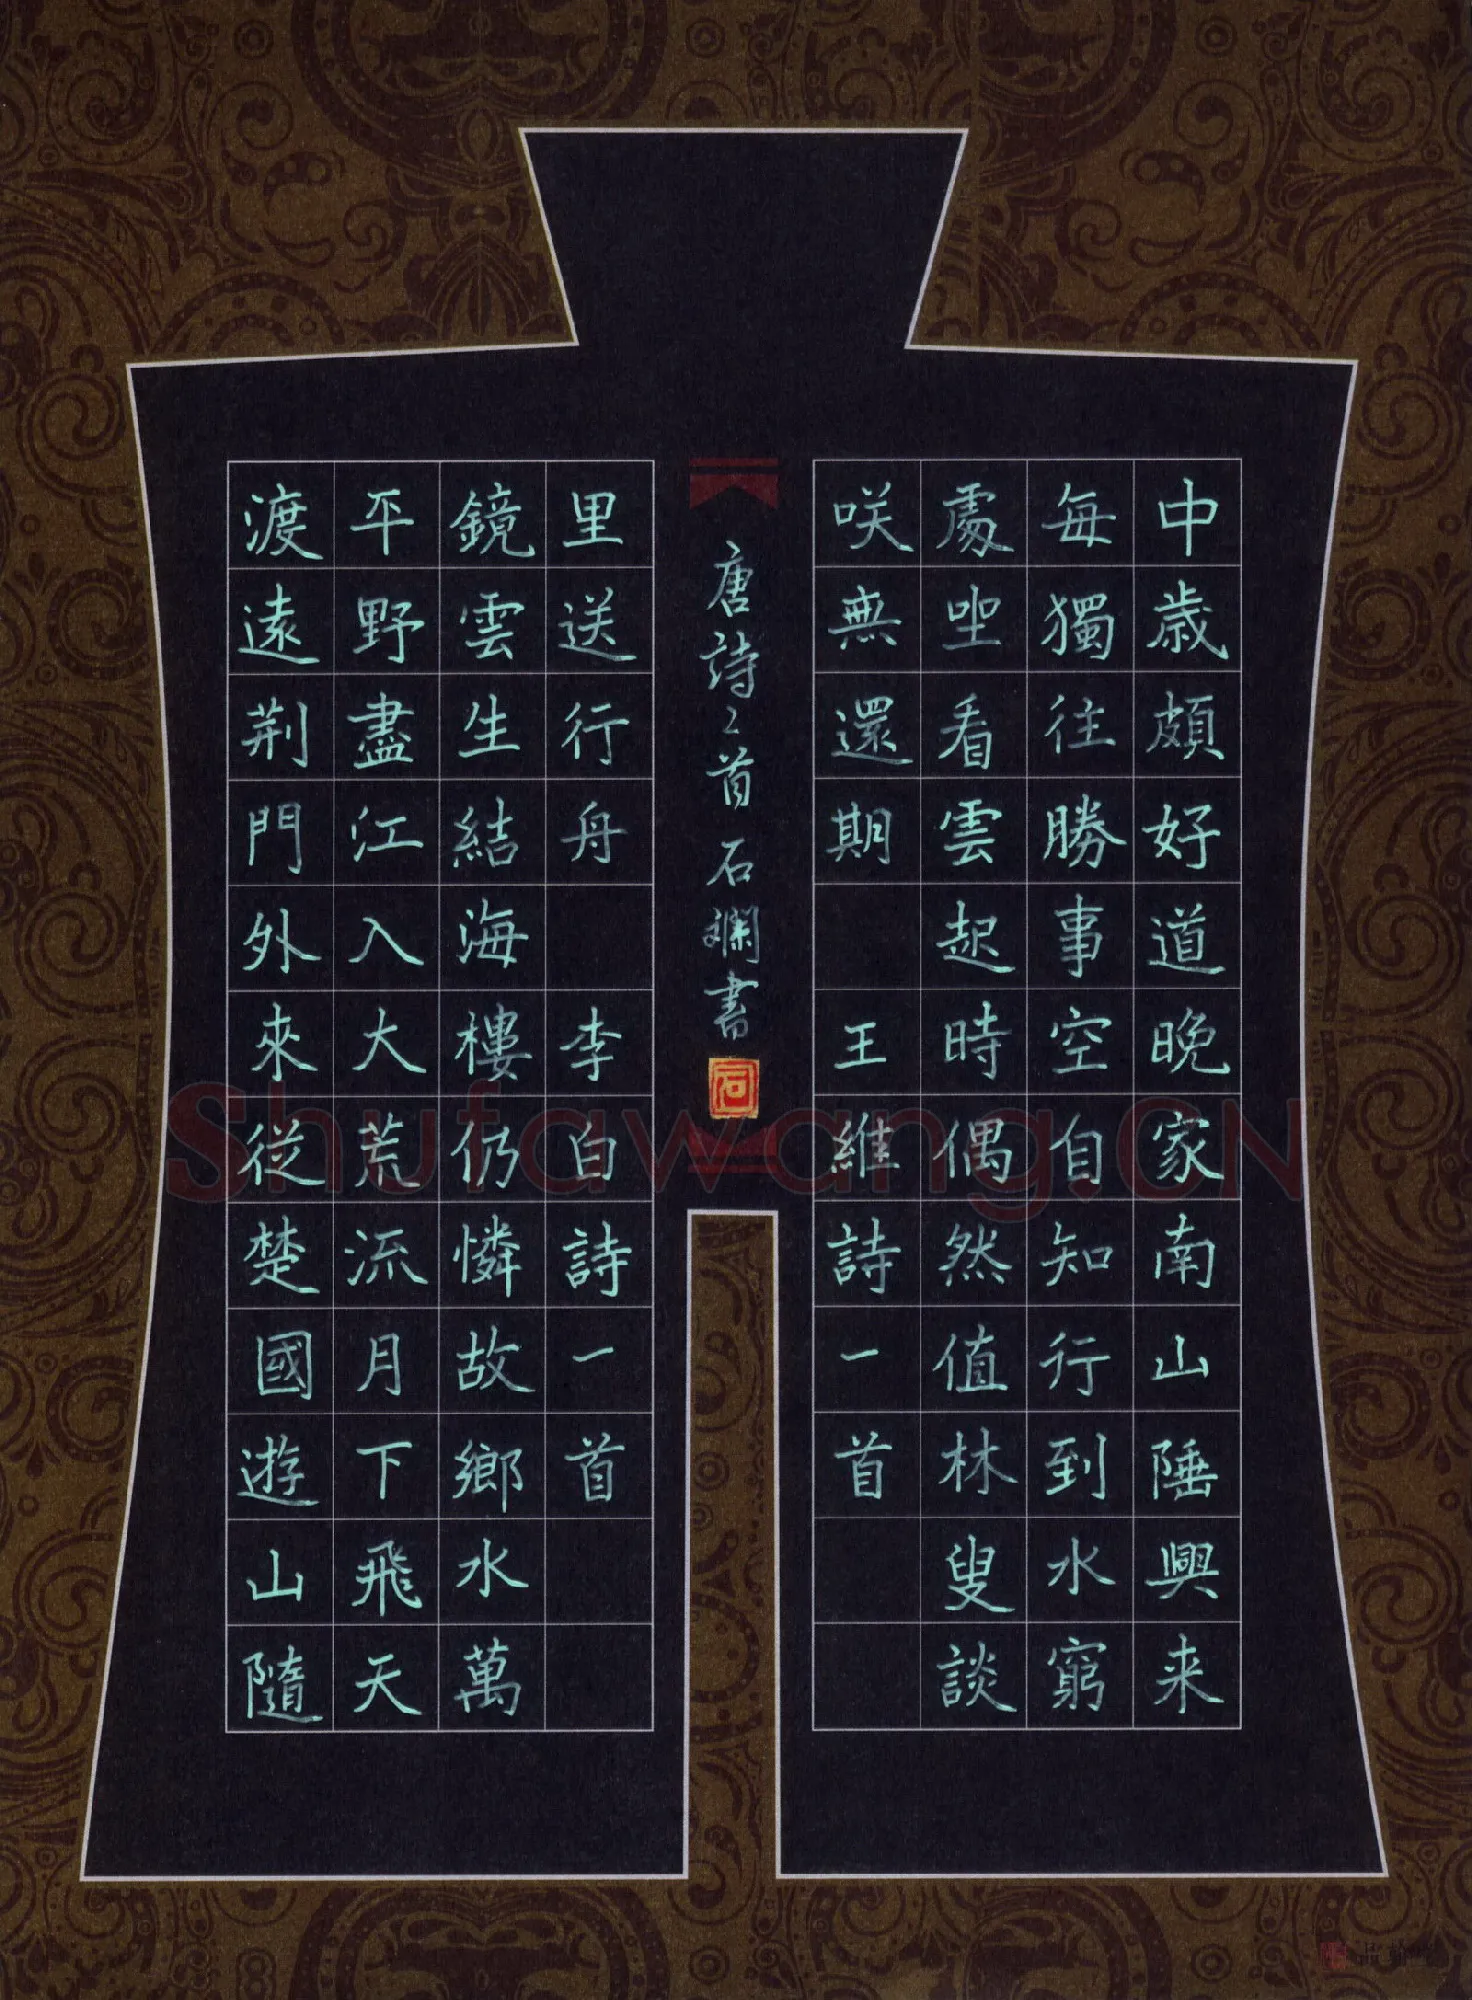 中歲頗好道晚家南山陲興来
每獨往勝事空自知行到水窮
處坐看雲起時偶然值林叟談
咲無還期 王維詩一首
渡遠荆門外來從楚國遊山隨
平野盡江入大荒流月下飛天
鏡雲生結海樓仍憐故鄉水萬
里送行舟 李白詩一首
唐詩二首 石斕書
石
Shufawang.CN